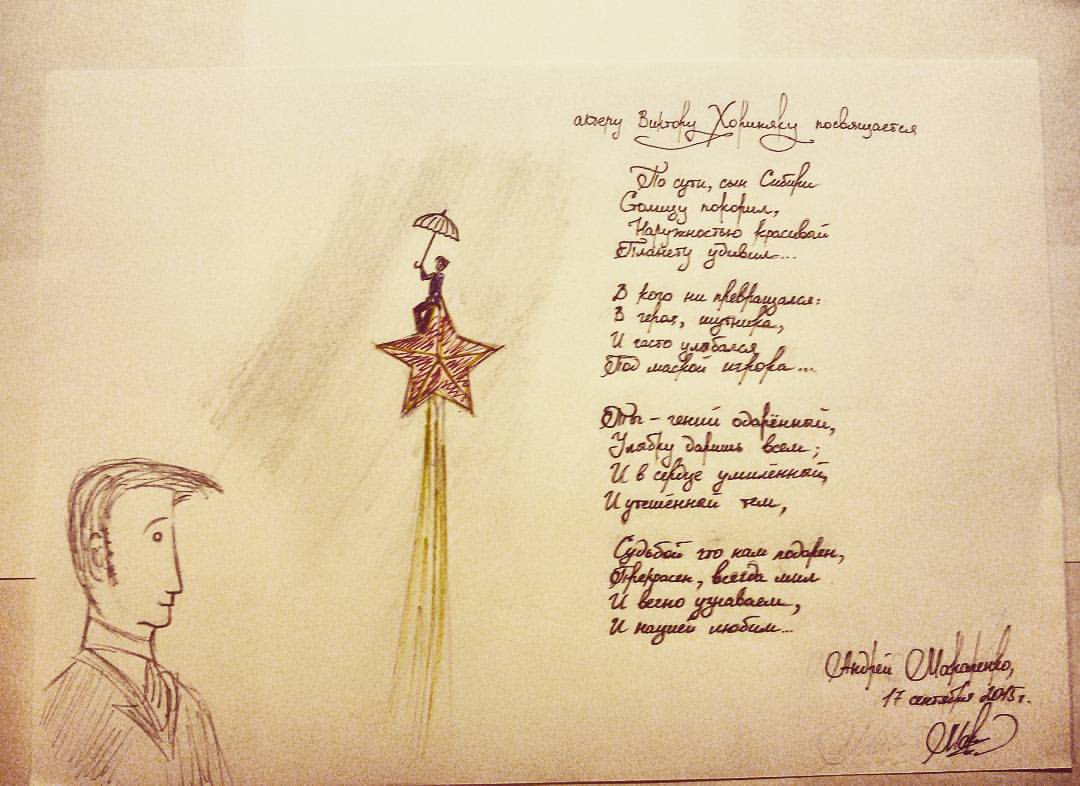 актеру Виктору Хориняку посвящается
По сути, сын Сибири
Столицу покорил,
Наружностью красивой
Планету удивил...
В кого ни превращался:
В героя, шутника,
И часто улыбался
Под маской игрока...
Ты - гений одарённый,
Улыбку даришь всем;
И в сердце умилённый,
И утешенной тем,
Судьбой что нам подарен,
Прекрасен, всегда мил
И вечно узнаваем,
И нацией любим...
Андрей Макаренко,
17 сентября 2015 г.
Мак